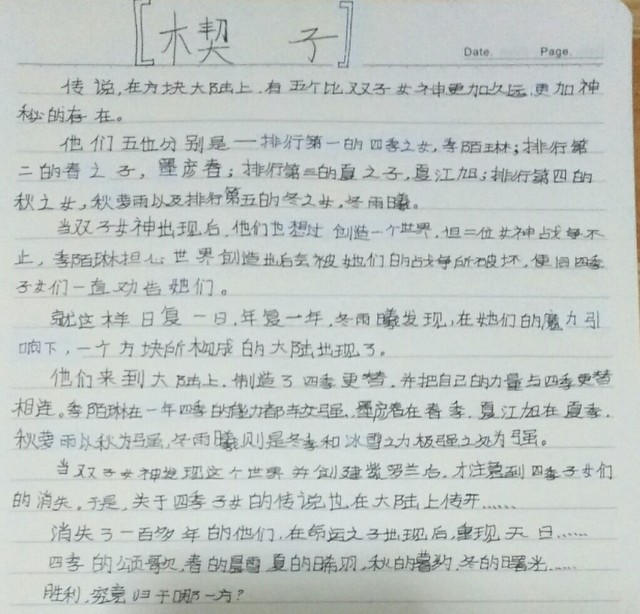 [楔 子]
Date. Page.
传说,在方块大陆上,有五个比双子女神更加久远,更加神
秘的存在。
他们五位分别是——排行第一的四季之女,季陌琳;排行第
二的春之子,墨彦春;排行第三的夏之子,夏江旭;排行第四的
秋之女,秋萝雨以及排行第五的冬之女,冬雨曦。
当双子女神出现后,他们也想过创造一个世界,但二位女神战争不
止,季陌琳担心世界创造出后会被她们的战争所破坏,便同四季
子女们一直劝告她们。
就这样日复一日,年复一年,冬雨曦发现,在她们的魔力引
响下,一个方块所构成的大陆出现了。
他们来到大陆上,制造了四季更替,并把自己的力量与四季更替
相连。季陌琳在一年四季的能力都非强,墨彦春在春季,夏江旭在夏季,
秋萝雨以秋为强,冬雨曦则是冬季和冰雪之力极强之处为强。
当双子女神发现这个世界并创建紫罗兰后,才注意到四季子女们
的消失,于是,关于四季子女的传说也在大陆上传开……
消失了一百多年的他们,在命运之子出现后,重现天日……
四季的颂歌,春的 夏的 羽,秋的 ,冬的曙光……
胜利,究竟归于哪一方?